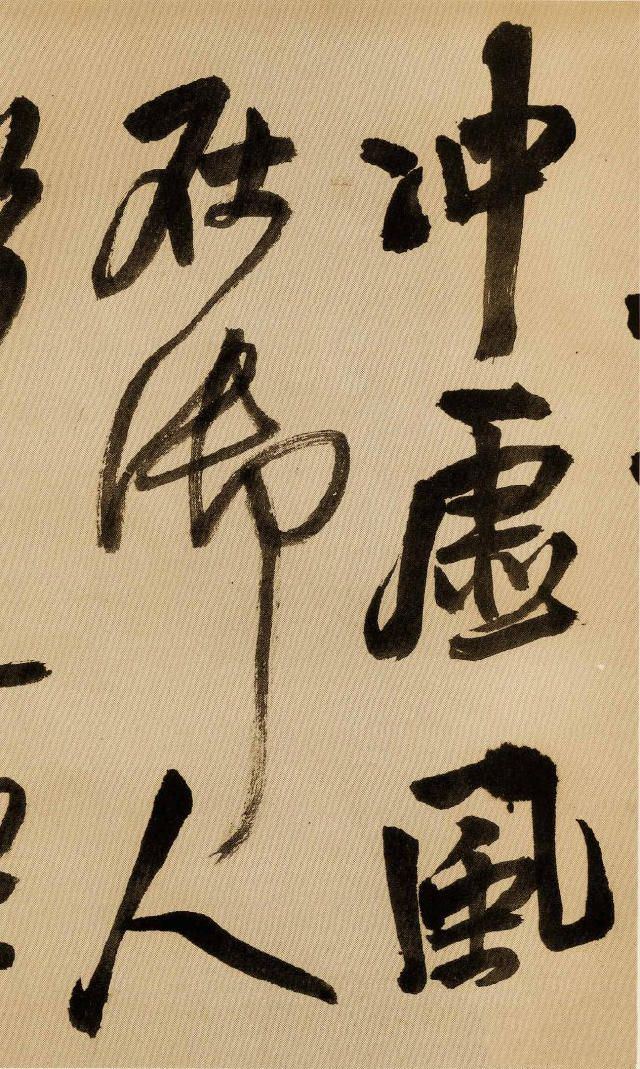 冲虛風
在御人